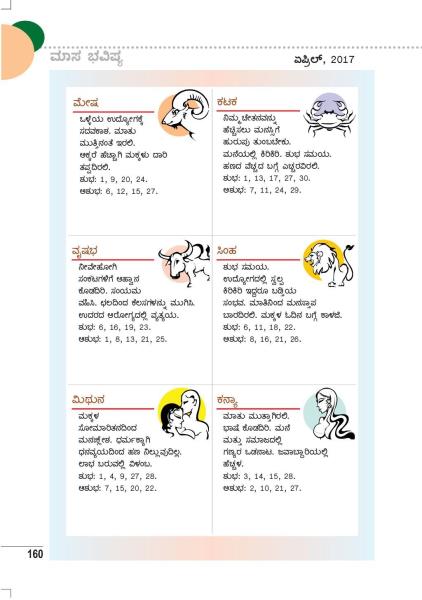 ಮಾಸ ಭವಿಷ್ಯ
ಏಪ್ರಿಲ್, 2017
ಮೇಷ
ಒಳ್ಳೆಯ ಉದ್ಯೋಗಕ್ಕೆ
ಸದವಕಾಶ. ಮಾತು
ಮುತ್ತಿನಂತೆ ಇರಲಿ.
ಅಕ್ಕರೆ ಹೆಚ್ಚಾಗಿ ಮಕ್ಕಳು ದಾರಿ
ತಪ್ಪದಿರಲಿ.
ಶುಭ: 1, 9, 20, 24.
ಅಶುಭ: 6, 12, 15, 27.
ವೃಷಭ
ನೀವೇಹೋಗಿ
ಸಂಕಟಗಳಿಗೆ ಆಹ್ವಾನ
ಕೊಡದಿರಿ. ಸಂಯಮ
ವಹಿಸಿ. ಛಲದಿಂದ ಕೆಲಸಗಳನ್ನು ಮುಗಿಸಿ.
ಉದರದ ಆರೋಗ್ಯದಲ್ಲಿ ವ್ಯತ್ಯಯ.
ಶುಭ: 6, 16, 19, 23.
ಅಶುಭ: 1, 8, 13, 21, 25.
ಮಿಥುನ
ಮಕ್ಕಳ
ಸೋಮಾರಿತನದಿಂದ
ಮನಃಕ್ಲೇಶ. ಧರ್ಮಕ್ಕಾಗಿ
ಧನವ್ಯಯದಿಂದ ಹಣ ನಿಲ್ಲುವುದಿಲ್ಲ.
ಲಾಭ ಬರುವಲ್ಲಿ ವಿಳಂಬ.
ಶುಭ: 1, 4, 9, 27, 28.
ಅಶುಭ: 7, 15, 20, 22.
ಕಟಕ
ನಿಮ್ಮ ಚೇತನವನ್ನು
ಹೆಚ್ಚಿಸಲು ಮನಸ್ಸಿಗೆ
ಹುರುಪು ತುಂಬಬೇಕು.
ಮನೆಯಲ್ಲಿ ಕಿರಿಕಿರಿ. ಶುಭ ಸಮಯ.
ಹಣದ ವೆಚ್ಚದ ಬಗ್ಗೆ ಎಚ್ಚರವಿರಲಿ.
ಶುಭ: 1, 13, 17, 27, 30.
ಅಶುಭ: 7, 11, 24, 29.
ಸಿಂಹ
ಶುಭ ಸಮಯ.
ಉದ್ಯೋಗದಲ್ಲಿ ಸ್ವಲ್ಪ
ಕಿರಿಕಿರಿ ಇದ್ದರೂ ಬಡ್ತಿಯ
ಸಂಭವ. ಮಾತಿನಿಂದ ಮನಸ್ತಾಪ
ಬಾರದಿರಲಿ. ಮಕ್ಕಳ ಓದಿನ ಬಗ್ಗೆ ಕಾಳಜಿ.
ಶುಭ: 6, 11, 18, 22.
ಅಶುಭ: 8, 16, 21, 26.
ಕನ್ಯಾ
ಮಾತು ಮುತ್ತಾಗಿರಲಿ.
ಭಾಷೆ ಕೊಡದಿರಿ. ಮನೆ
ಮತ್ತು ಸಮಾಜದಲ್ಲಿ
ಗಣ್ಯರ ಒಡನಾಟ. ಜವಾಬ್ದಾರಿಯಲ್ಲಿ
ಹೆಚ್ಚಳ.
ಶುಭ: 3, 14, 15, 28.
ಅಶುಭ: 2, 10, 21, 27.
160